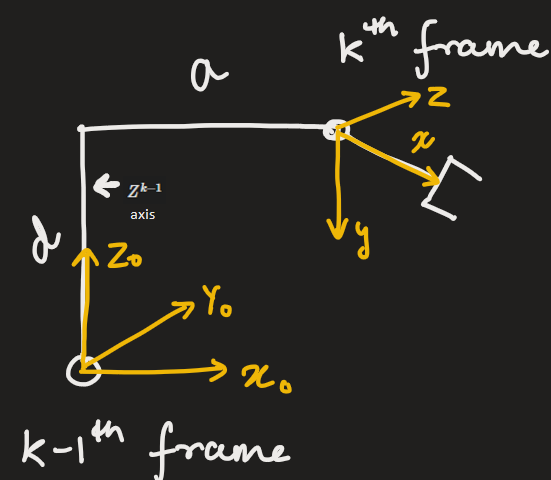 kth frame
a
z
x
Z^{k-1}
axis
d
Z₀
y
Y₀
x₀
k-1th frame